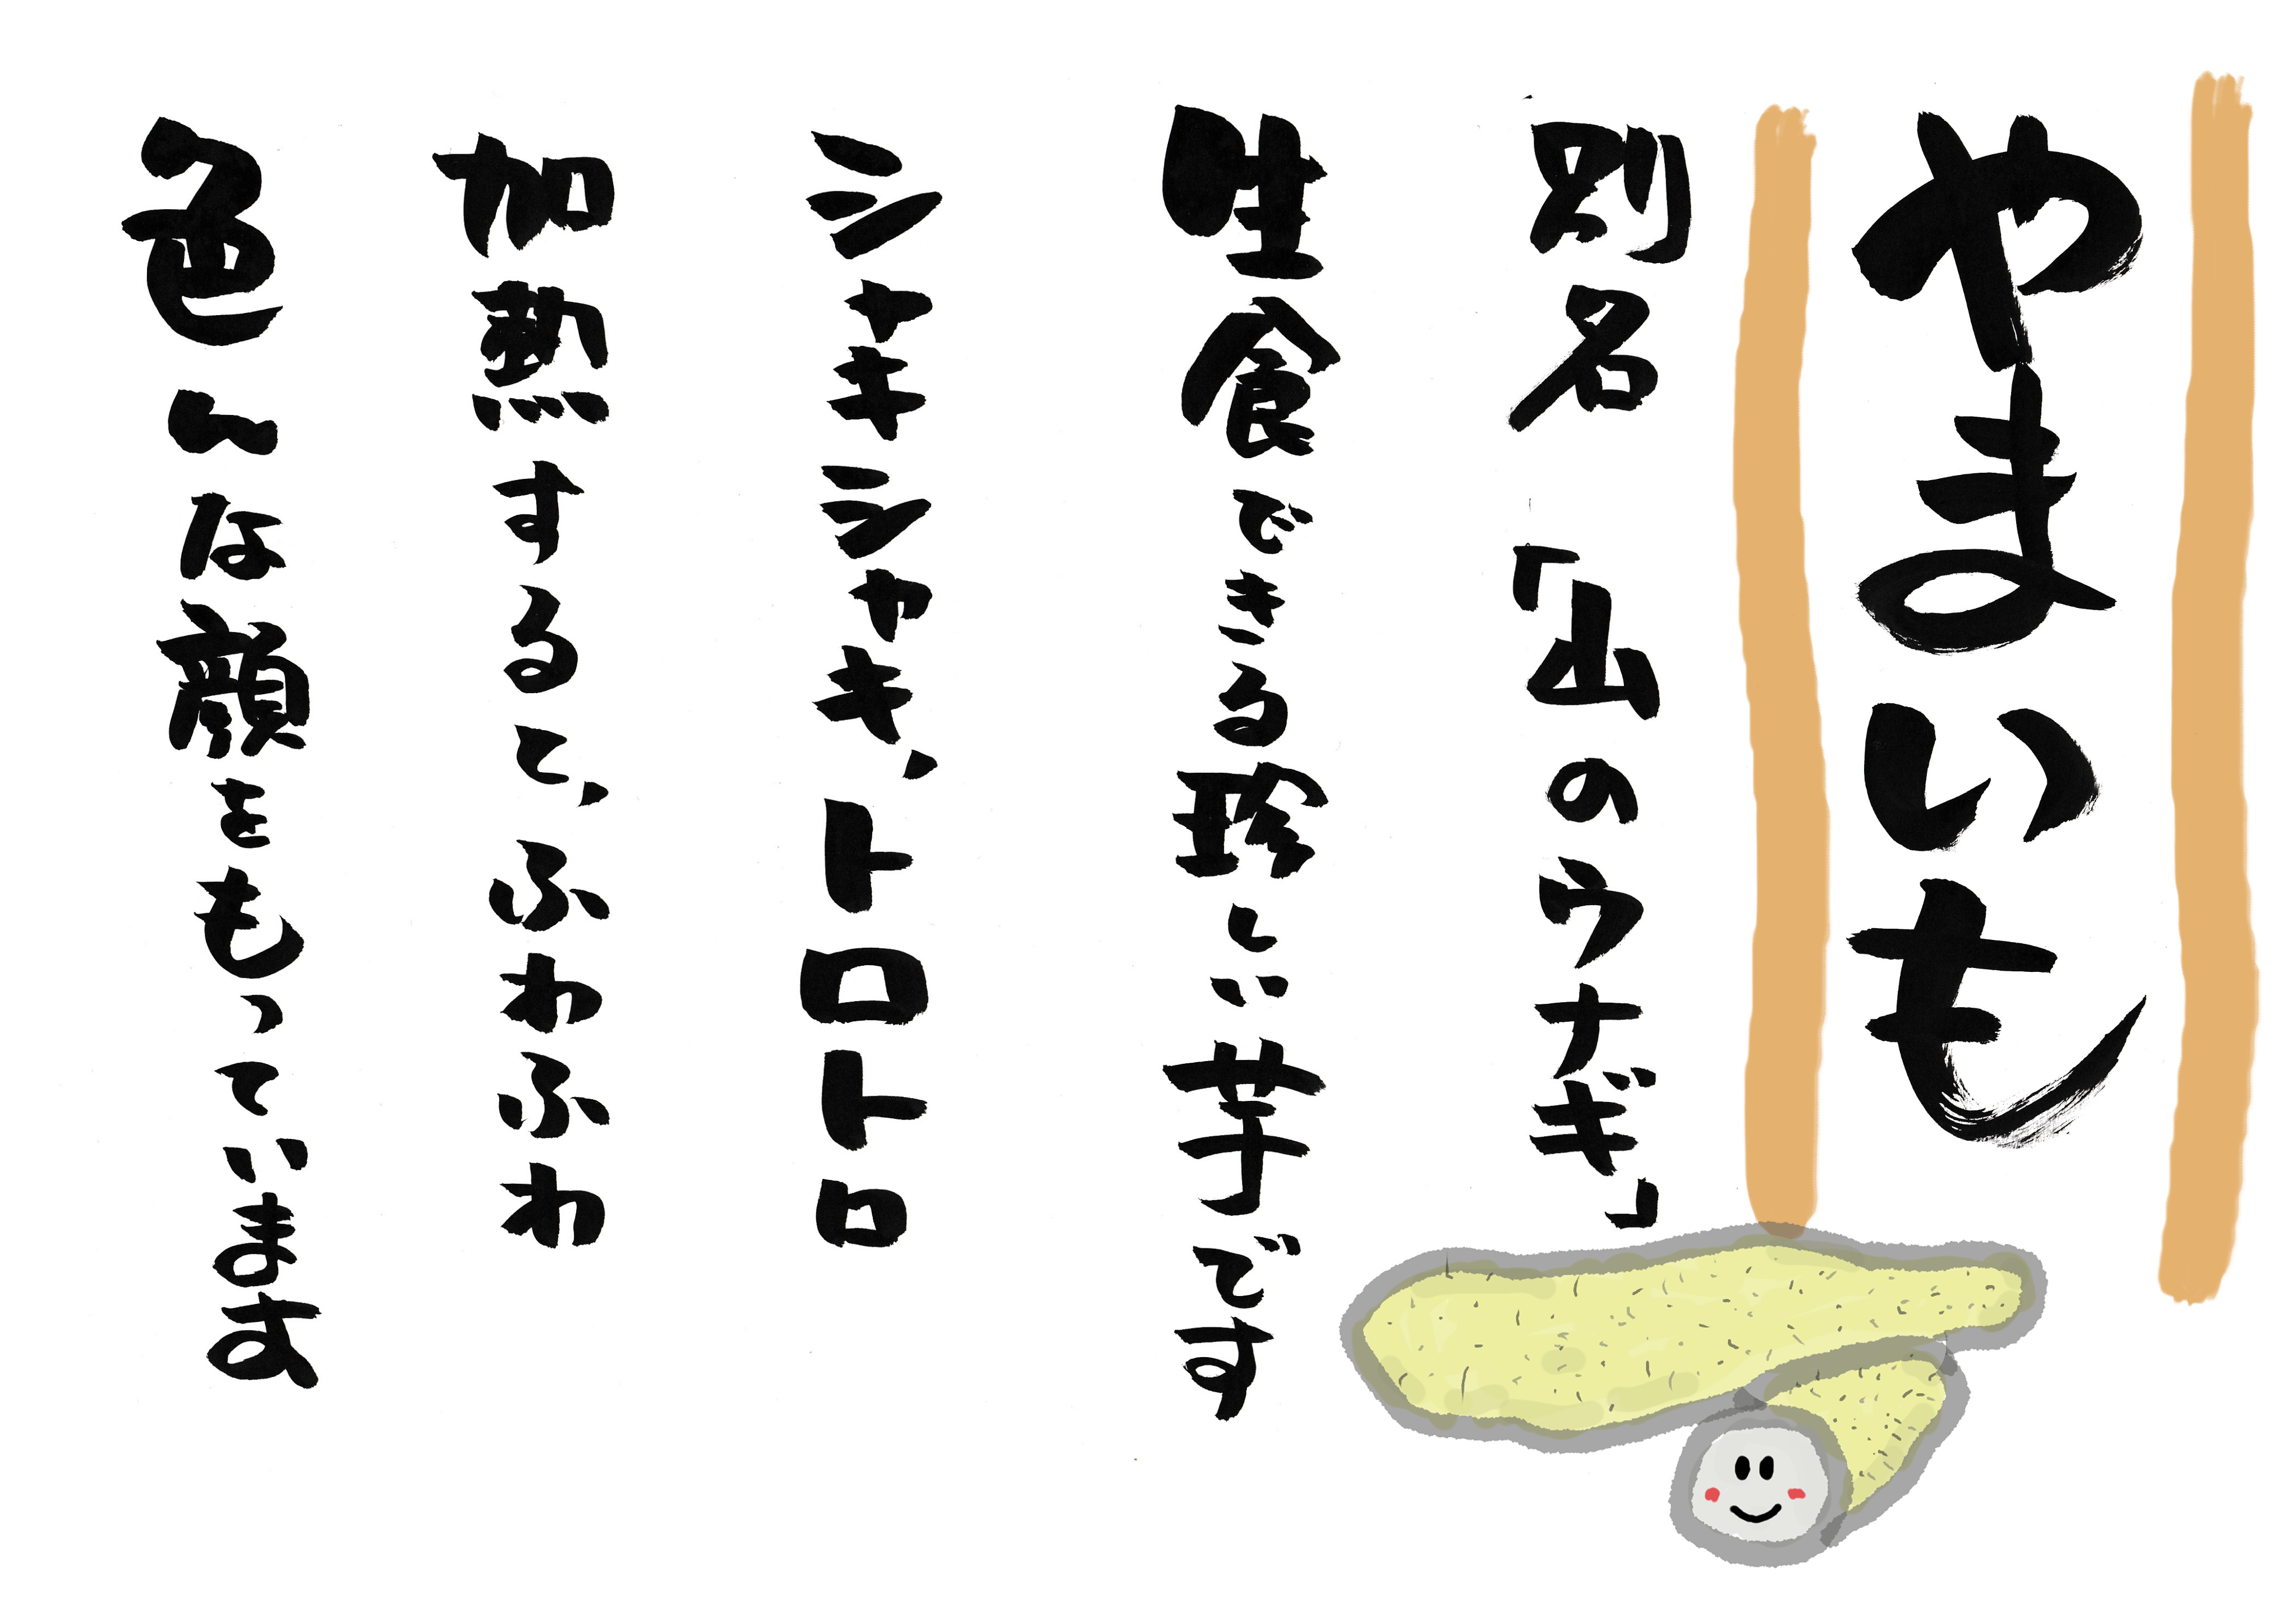 やまいも
別名 「山のウナギ」
生食できる珍しい芋です
シャキシャキ、トロトロ
加熱すると、ふわふわ
色んな顔をもっています